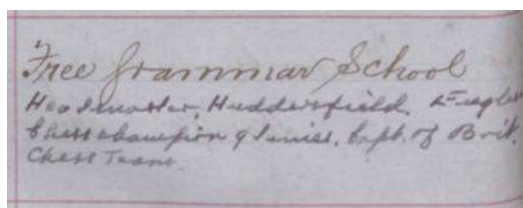 Free Grammar School
Headmaster, Huddersfield,
Chess champion Capt. of Brit.
Chess Team.